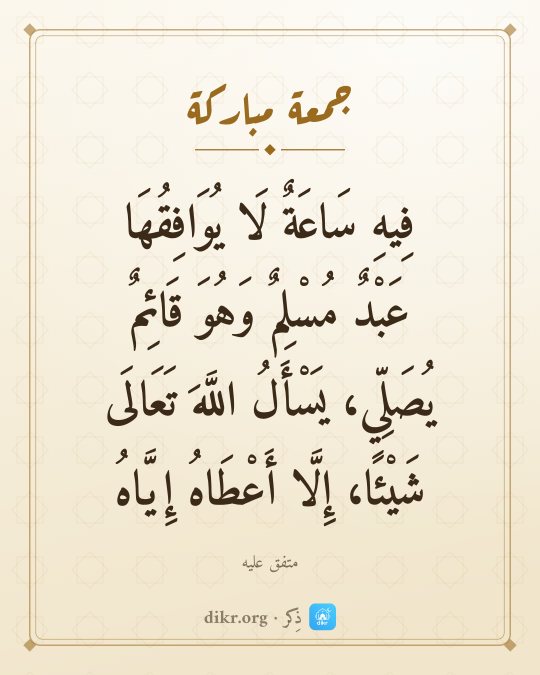 جمعة مباركة
فِيهِ سَاعَةٌ لَا يُوَافِقُهَا
عَبْدٌ مُسْلِمٌ وَهُوَ قَائِمٌ
يُصَلِّي، يَسْأَلُ اللَّهَ تَعَالَى
شَيْئًا، إِلَّا أَعْطَاهُ إِيَّاهُ
متفق عليه
ذِكر · dikr.org
dikr